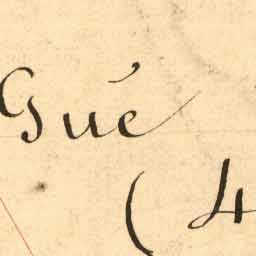 Gué
(4